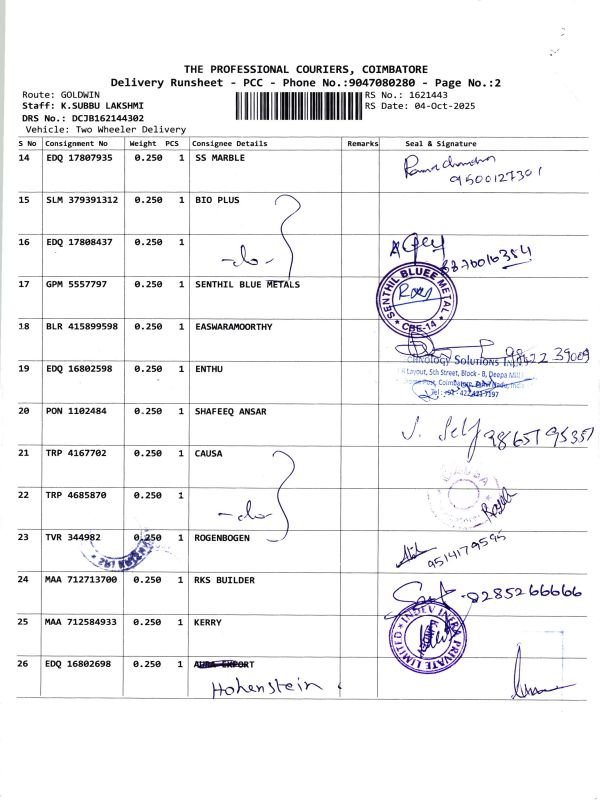 THE PROFESSIONAL COURIERS, COIMBATORE
Delivery Runsheet - PCC - Phone No.:9047080280 - Page No.:2
Route: GOLDWIN
RS No.: 1621443
Staff: K.SUBBU LAKSHMI
RS Date: 04-Oct-2025
DRS No.: DCJB162144302
Vehicle: Two Wheeler Delivery
S No Consignment No Weight PCS Consignee Details Remarks Seal & Signature
14 EDQ 17807935 0.250 1 SS MARBLE
9500127301
15 SLM 379391312 0.250 1 BIO PLUS
16 EDQ 17808437 0.250 1
-do-
17 GPM 5557797 0.250 1 SENTHIL BLUE METALS
SENTHIL BLUEE METAL
CBE-14
18 BLR 415899598 0.250 1 EASWARAMOORTHY
19 EDQ 16802598 0.250 1 ENTHU
Solutions
Layout, 5th Street, Block - B, Deepa
20 PON 1102484 0.250 1 SHAFEEQ ANSAR
J. Self 9865795357
21 TRP 4167702 0.250 1 CAUSA
22 TRP 4685870 0.250 1
-do-
23 TVR 344982 0.250 1 ROGENBOGEN
9514179595
24 MAA 712713700 0.250 1 RKS BUILDER
25 MAA 712584933 0.250 1 KERRY
INDEV INFRA PRIVATE LIMITED
26 EDQ 16802698 0.250 1
Hohenstein